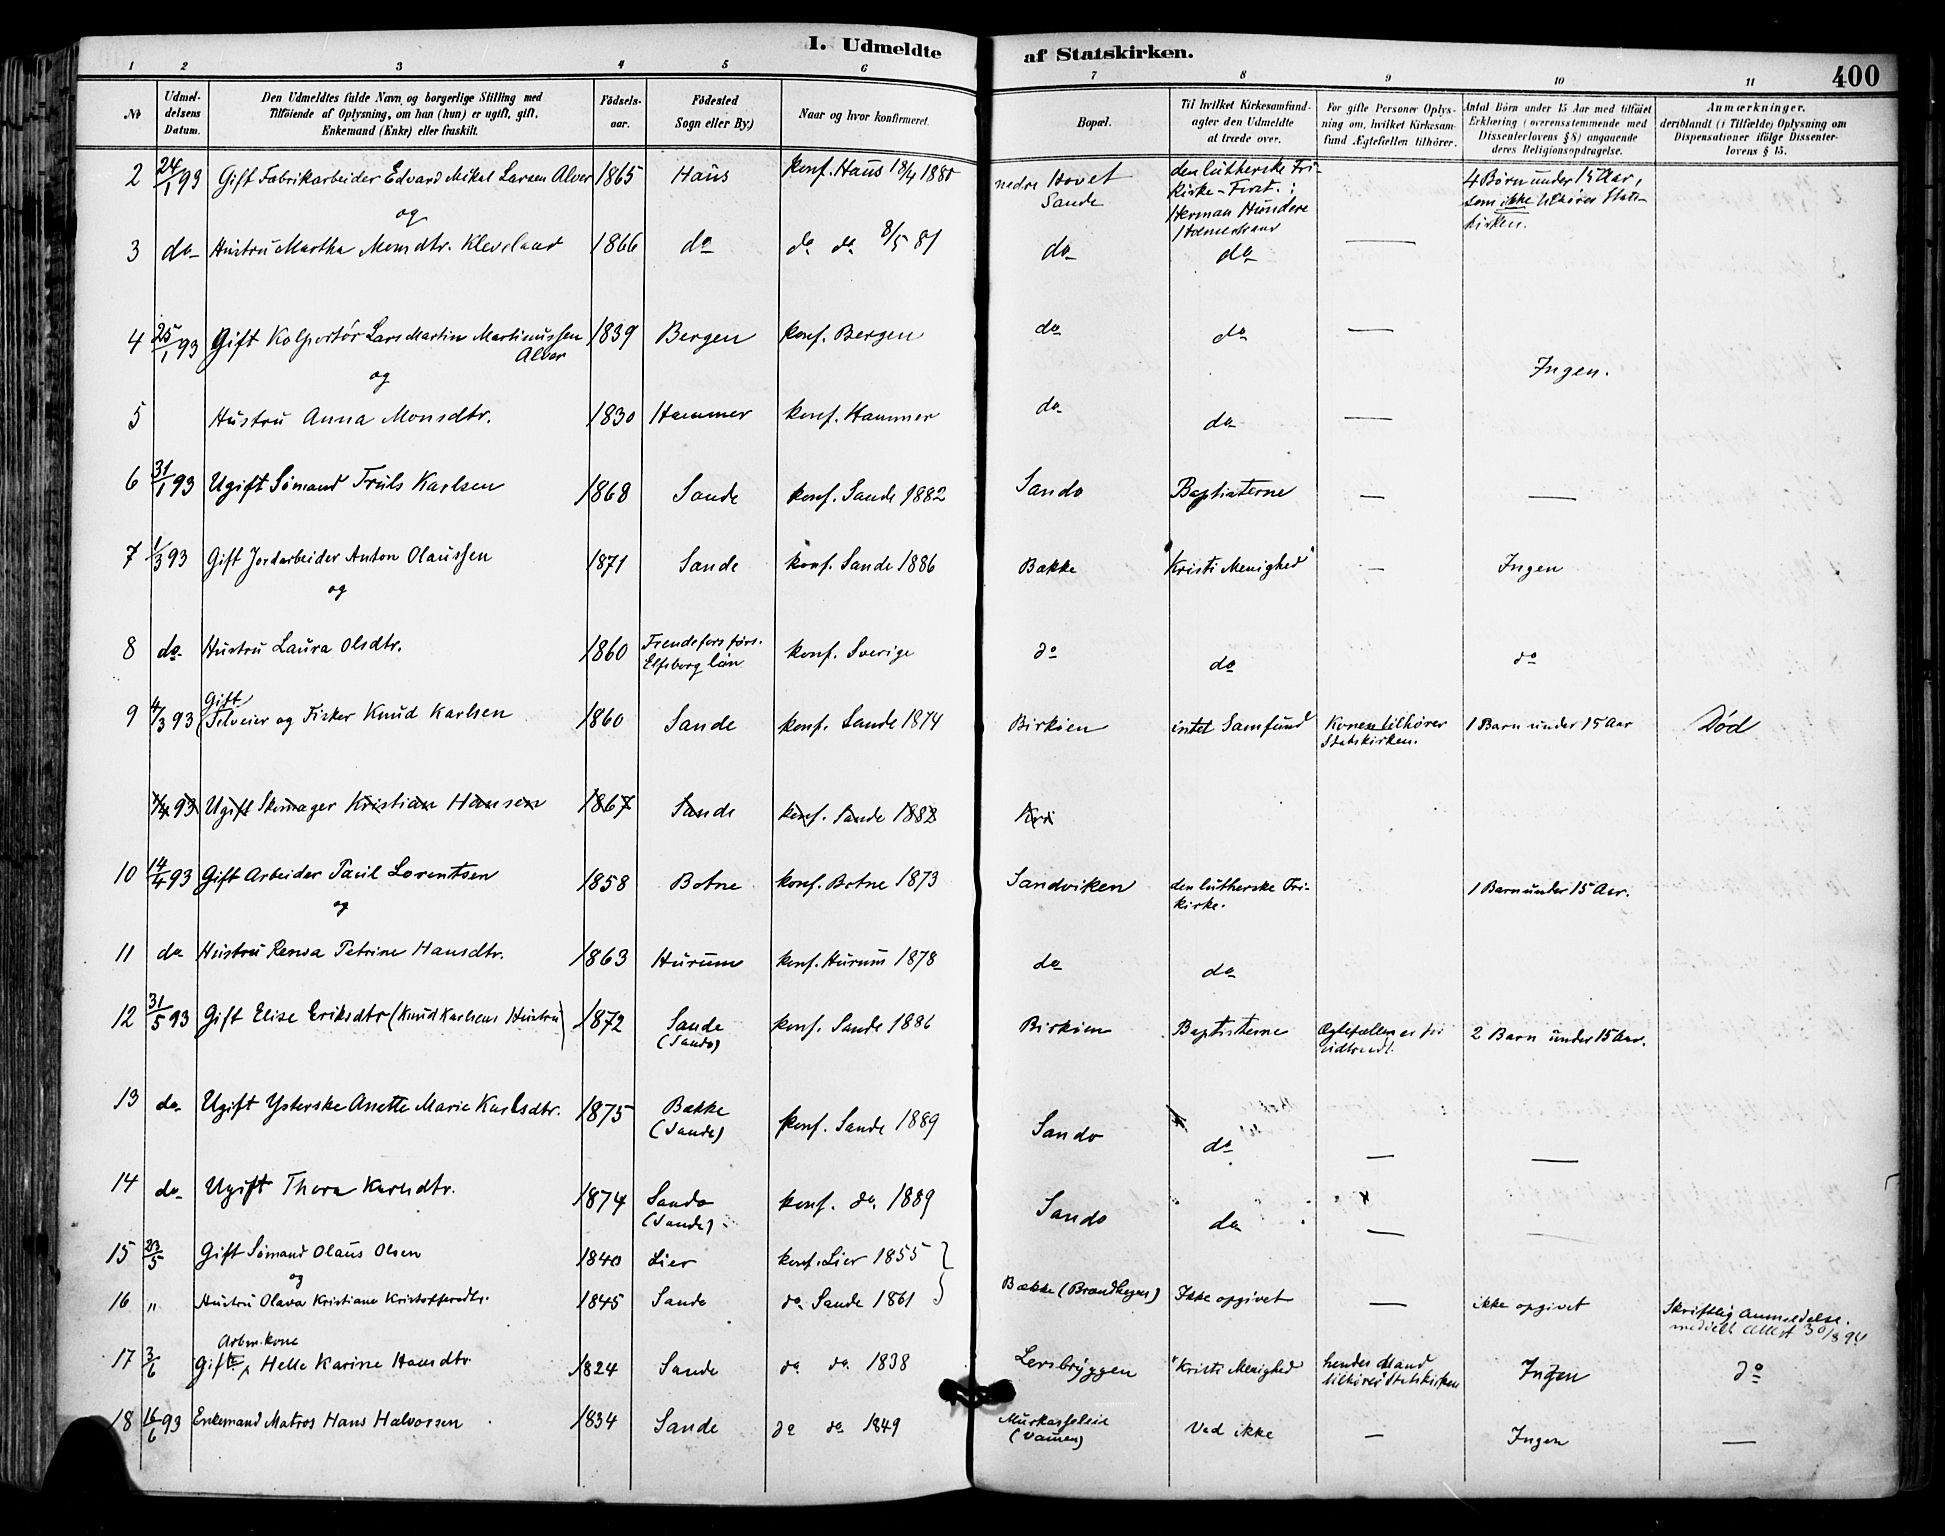 I. Udmeldte af Statskirken. 400
1 2 3 4 5 6 7 8 9 10 11
No
Udmeldelsens Datum.
Den Udmeldtes fulde Navn og borgerlige Stilling med Tilføiende af Oplysning, om han (hun) er ugift, gift, Enkemand (Enke) eller fraskilt.
Fødselsaar.
Fødested Sogn eller By.)
Naar og hvor konfirmeret.
Bopæl.
Til hvilket Kirkesamfund agter den Udmeldte at træde over.
For gifte Personer Oplysning om, hvilket Kirkesamfund Ægtefællen tilhører.
Antal Børn under 15 Aar med tilføiet Erklæring (overensstemmende med Dissenterlovens § 8) angaaende deres Religionsopdragelse.
Anmærkninger. deriblandt (i Tilfælde) Oplysning om Dispensationer ifølge Dissenterlovens § 15.
2 24/1 93 Gift Fabrikarbeider Edvard Mikal Larsen Alver 1865 Haus konf. Haus 18/4 1880 nedre Hovet Sande den lutherske Frikirke - Forst.: Herman Hundere Holmestrand 4 Børn under 15 Aar, som ikke tilhører Statskirken.
og
3 do Hustru Martha Monsdtr. Kleveland 1866 do do do 8/5 81 do do —
4 25/1 93 Gift Kolportør Lars Martin Martinussen Alver 1839 Bergen konf. Bergen do do — Ingen.
og
5 Hustru Anna Monsdtr. 1830 Hammer konf. Hammer do do —
6 31/1 93 Ugift Sømand Truls Karlsen 1868 Sande konf. Sande 1882 Sando Baptisterne — —
7 1/3 93 Gift Jordarbeider Anton Olaussen 1871 Sande konf. Sande 1886 Bække "Kristi Menighed" — Ingen
og
8 do Hustru Laura Olsdtr. 1860 Frendefors førs. Elfsborg län konf. Sverige do do do
9 4/3 93 Gift Selveier og Fisker Knud Karlsen 1860 Sande konf. Sande 1874 Birkøen intet Samfund Konen tilhører Statskirken. 1 Barn under 15 Aar Død
93 Ugift Skomager Kristian Hansen 1867 Sande konf. Sande 1882 Kri
10 14/4 93 Gift Arbeider Paul Lorentsen 1858 Botne konf. Botne 1873 Sandviken den lutherske Frikirke. 1 Barn under 15 Aar.
og
11 do Hustru Rensa Petrine Hansdtr. 1863 Hurum konf. Hurum 1878 do do
12 31/5 93 Gift Elise Eriksdtr (Knud Karlsens Hustru) 1872 Sande (Sando) konf. Sande 1886 Birkøen Baptisterne Ægtefællen er udtraadt. 2 Barn under 15 Aar.
13 do Ugift Ysterske Anette Marie Karlsdtr. 1875 Bække (Sande) konf. Sande 1889 Sando do — —
14 do Ugift Thora Karlsdtr. 1874 Sando (Sande) konf. do. 1889 Sando do —
15 23/5 Gift Sømand Olaus Olsen 1840 Lier konf. Lier 1855
og
16 " Hustru Olava Kristiane Kristoffersdtr. 1845 Sande do Sande 1861 Bække (Brandhegnes) Ikke opgivet — ikke opgivet Skriftlig Anmeldelse. meddelt Attest 30/8 94
17 3/6 Gift Arbm.kone Helle Karine Hansdtr 1824 Sande do do 1838 Lersbryggen "Kristi Menighed hendes Mand tilhører Statskirken Ingen do
18 16/6 93 Enkemand Matros Hans Halvorsen 1834 Sande do do 1849 (Vamen) Ved ikke — Ingen —